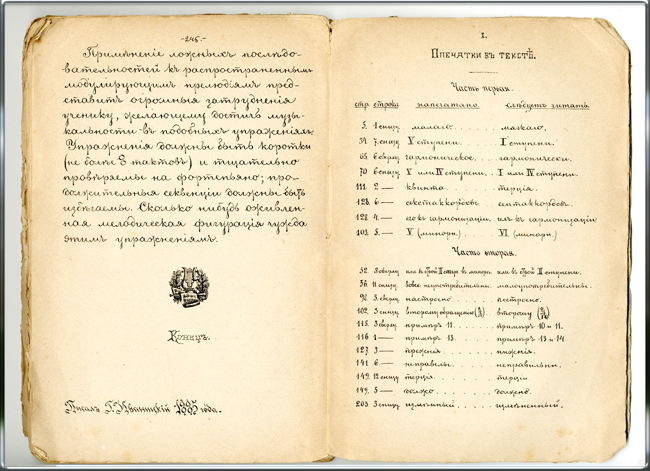 -246.-
Примѣненіе ложныхъ послѣдо-
вательностей къ распространеннымъ
модулирующимъ прелюдіямъ пред-
ставитъ огромныя затрудненія
ученику, желающему достичь музы-
кальности въ подобныхъ упражненіяхъ.
Упражненія должны быть коротки
(не болѣе 8 тактовъ) и тщательно
провѣряемы на фортепьяно; про-
должительныя секвенціи должны быть
избѣгаемы. Сколько нибудь оживлен-
ная мелодическая фигурація чужда
этимъ упражненіямъ.
Конецъ.
Писалъ Г. Иваницкій 1885 года.
I.
Опечатки въ текстѣ.
Часть первая.
стр. строка напечатано слѣдуетъ читать
5. 1 снизу малаго. малаго.
34. 7 снизу V ступени. I ступени.
65. 6 сверху гармоническое. гармонически.
70. 6 снизу V или IV ступени. I или IV ступени.
111. 2 — квинта. терція.
123. 6 — секстаккордовъ. септаккордовъ.
128. 4 — его къ гармонизаціи ихъ къ гармонизаціи
102. 5 — V (минорн.) VI (минорн.)
Часть вторая.
52. 3 сверху или въ II ступени.
36. 11 снизу вовсе неупотребительны. малоупотребительны.
92. 5 сверху настроено. построено.
102. 3 снизу второму обращенію второму
115. 3 сверху примѣръ 11. примѣръ 10 и 11.
116. 1 — примѣръ 13. примѣръ 13 и 14.
127. 3 — прежнія нижнія.
141. 6 — неправелы. неправильны.
149. 12 снизу терція. терціи
149. 5 — должо должно.
203. 3 снизу измѣнный. измѣненный.